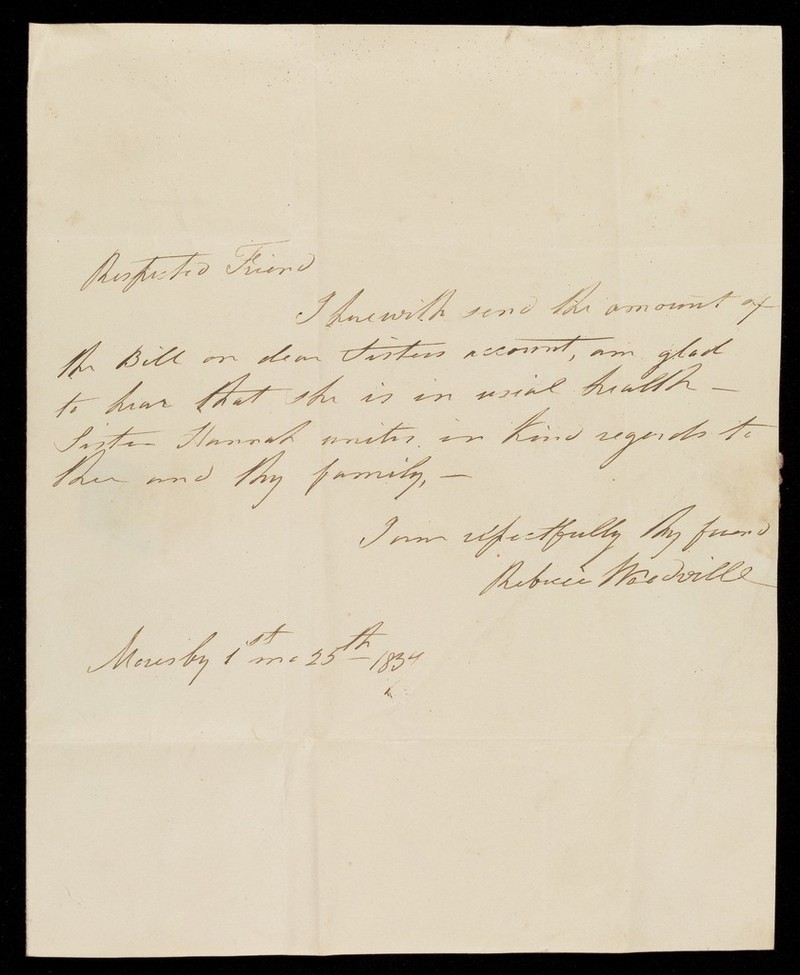 Respected Friend
I herewith send the amount of
the Bill on dear Sisters account, am glad
to hear that she is in usial health —
Sister Hannah unites in kind regards to
thee and thy family, —
I am respectfully thy friend
Rebecca Woodville
Moresby 1st mo 25th 1834